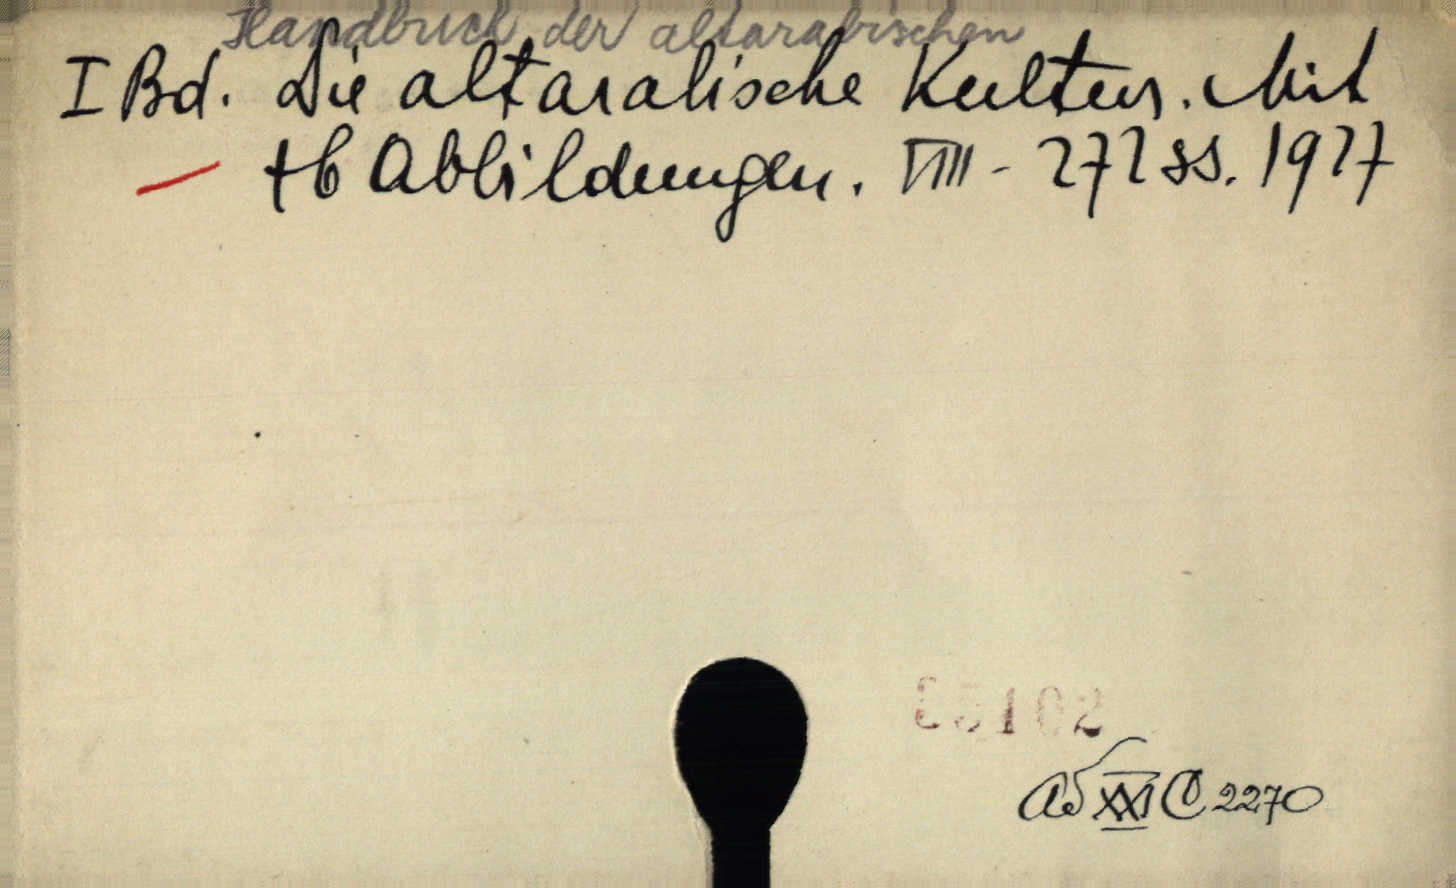 Handbuch der altarabischen
I Bd. Die altarabische Kultur. Mit
76 Abbildungen. VIII - 272 ss. 1927
XXI C 2270